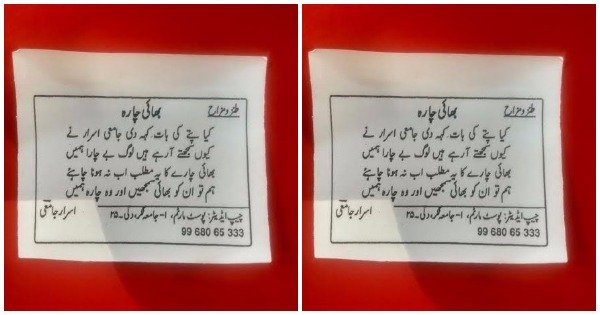 طنز و مزاح
بھائی چارہ
کیا پتے کی بات کہہ دی جامعی اسرار نے
کیوں سمجھتے آرہے ہیں لوگ بے چارا ہمیں
بھائی چارے کا یہ مطلب اب نہ ہونا چاہئے
ہم تو ان کو بھائی سمجھیں اور وہ چارہ ہمیں
اسرار جامعی
چیپ ایڈیٹر: پوسٹ مارٹم، ا۔ جامعہ نگر دلی۔۲۵
99 680 65 333
طنز و مزاح
بھائی چارہ
کیا پتے کی بات کہہ دی جامعی اسرار نے
کیوں سمجھتے آرہے ہیں لوگ بے چارا ہمیں
بھائی چارے کا یہ مطلب اب نہ ہونا چاہئے
ہم تو ان کو بھائی سمجھیں اور وہ چارہ ہمیں
اسرار جامعی
چیپ ایڈیٹر: پوسٹ مارٹم، ا۔ جامعہ نگر دلی۔۲۵
99 680 65 333